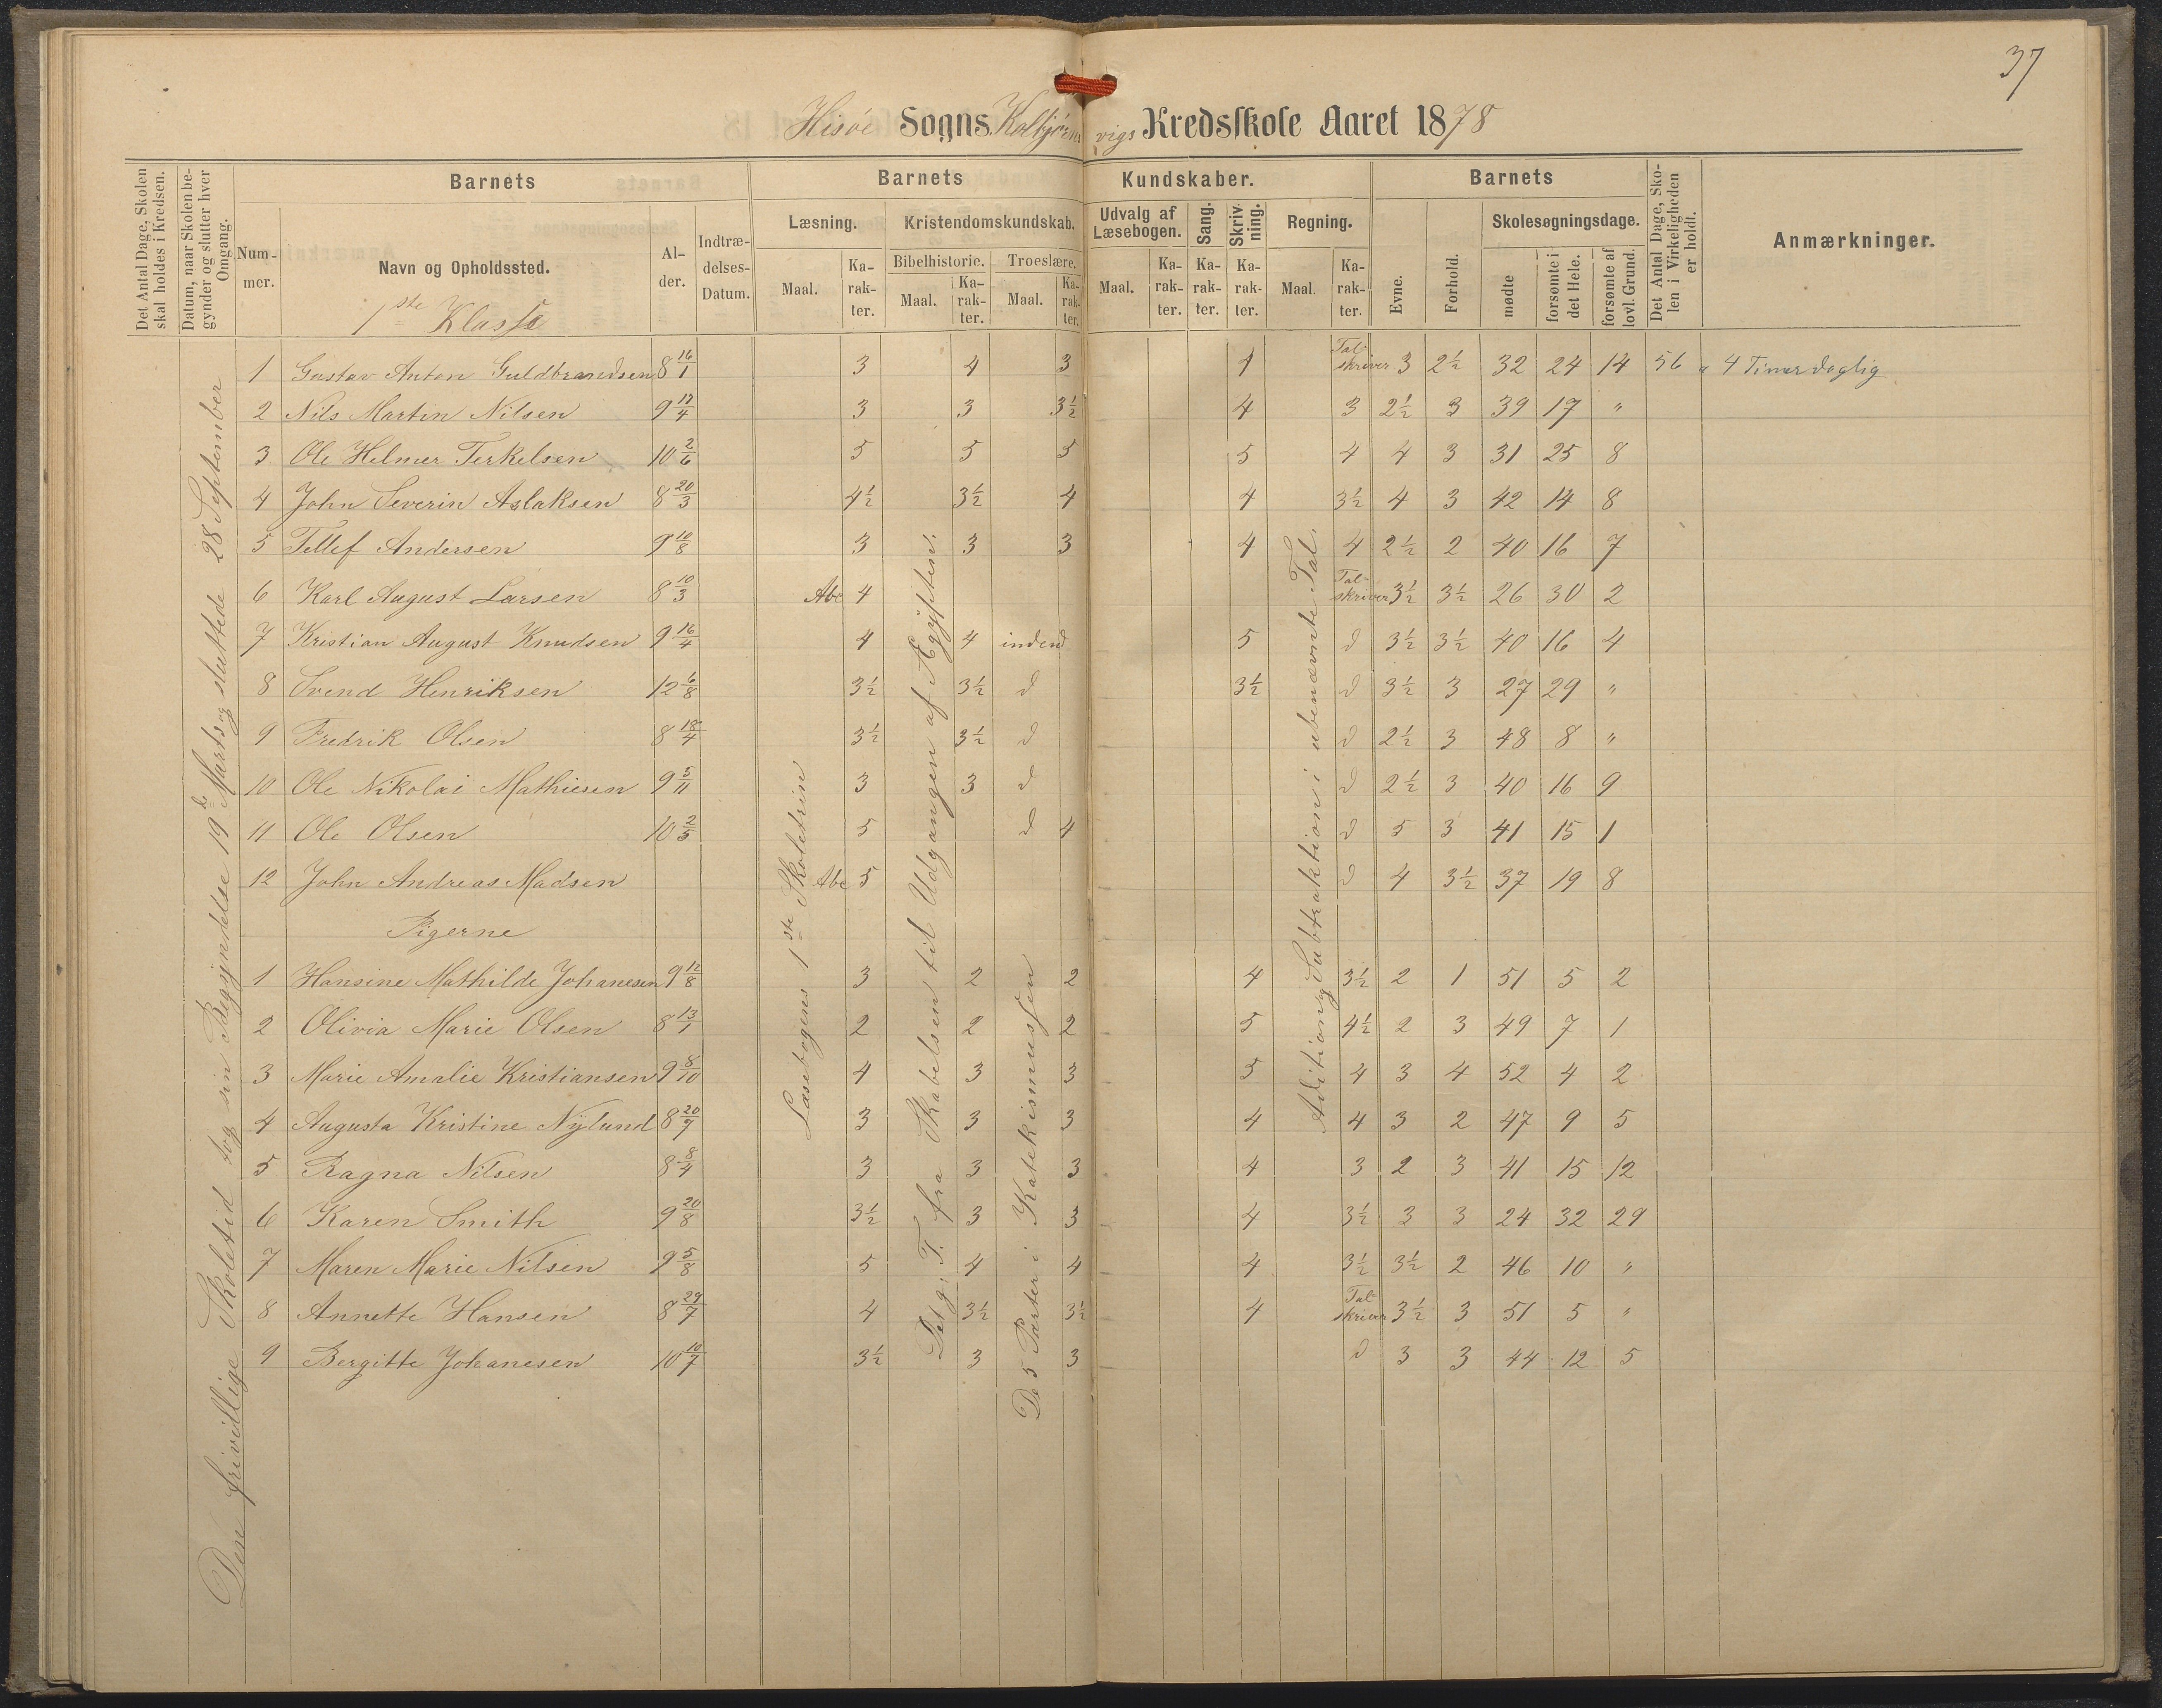 37
Hisöe Sogns Kolbjørns vigs Kredsskole Aaret 1878
Det Antal Dage, Skolen skal holdes i Kredsen.
Datum, naar Skolen begynder og slutter hver Omgang.
Barnets
Nummer.
Navn og Opholdssted.
1ste Klasse
Alder.
Indtrædelses-Datum.
Barnets Kundskaber.
Læsning.
Maal. Karakter.
Kristendomskundskab.
Bibelhistorie. Troeslære.
Maal. Karakter. Maal. Karakter.
Udvalg af Læsebogen.
Maal. Karakter.
Sang. Karakter.
Skrivning. Karakter.
Regning.
Maal. Karakter.
Barnets
Evne. Forhold.
Skolesøgningsdage.
mødte forsømte i det Hele. forsømte af lovl. Grund.
Det Antal Dage, Skolen i Virkeligheden er holdt.
Anmærkninger.
1 Gustav Anton Guldbrandsen 8 16/1 3 4 3 4 Talskriver 3 2½ 32 24 14 56 a 4 Timer daglig
2 Nils Martin Nilsen 9 17/4 3 3 3½ 4 3 2½ 3 39 17 "
3 Ole Helmer Terkelsen 10 2/6 5 5 5 5 4 4 3 31 25 8
4 John Severin Aslaksen 8 20/3 4½ 3½ 4 4 3½ 4 3 42 14 8
5 Tellef Andersen 9 10/8 3 3 3 4 4 2½ 2 40 16 7
6 Karl August Larsen 8 10/3 Abc 4 Talskriver 3½ 3½ 26 30 2
7 Kristian August Knudsen 9 16/4 4 4 indend 5 d 3½ 3½ 40 16 4
8 Svend Henriksen 12 6/8 3½ 3½ d 3½ d 3½ 3 27 29 "
9 Fredrik Olsen 8 18/4 3½ 3½ d d 2½ 3 48 8 "
10 Ole Nikolai Mathiesen 9 5/11 3 3 d d 2½ 3 40 16 9
11 Ole Olsen 10 2/5 5 d 4 d 5 3 41 15 1
12 John Andreas Madsen Abc 5 d 4 3½ 37 19 8
Pigerne
1 Hansine Mathilde Johanesen 9 12/8 3 2 2 4 3½ 2 1 51 5 2
2 Olivia Marie Olsen 8 13/1 2 2 2 5 4½ 2 3 49 7 1
3 Marie Amalie Kristiansen 9 8/10 4 3 3 5 4 3 4 52 4 2
4 Augusta Kristine Nylund 8 20/7 3 3 3 4 4 3 2 47 9 5
5 Ragna Nilsen 8 8/4 3 3 3 4 3 2 3 41 15 12
6 Karen Smith 9 20/8 3½ 3 3 4 3½ 3 3 24 32 29
7 Maren Marie Nilsen 9 5/8 5 4 4 4 3½ 3½ 2 46 10 "
8 Annette Hansen 8 29/7 4 3½ 3½ 4 Talskriver 3½ 3 51 5 "
9 Bergitte Johanesen 10 10/7 3½ 3 3 d 3 3 44 12 5
Den frivillige Skoletid tog sin Begyndelse 19de Marts og sluttede 28 September
Læsebogens 1ste Skoletrin
Det g. T. fra Skabelsen til Udgangen af Ægypten.
De 5 Parter i Katekismussen
Aditiong Subtraktion i ubenævnte Tal.